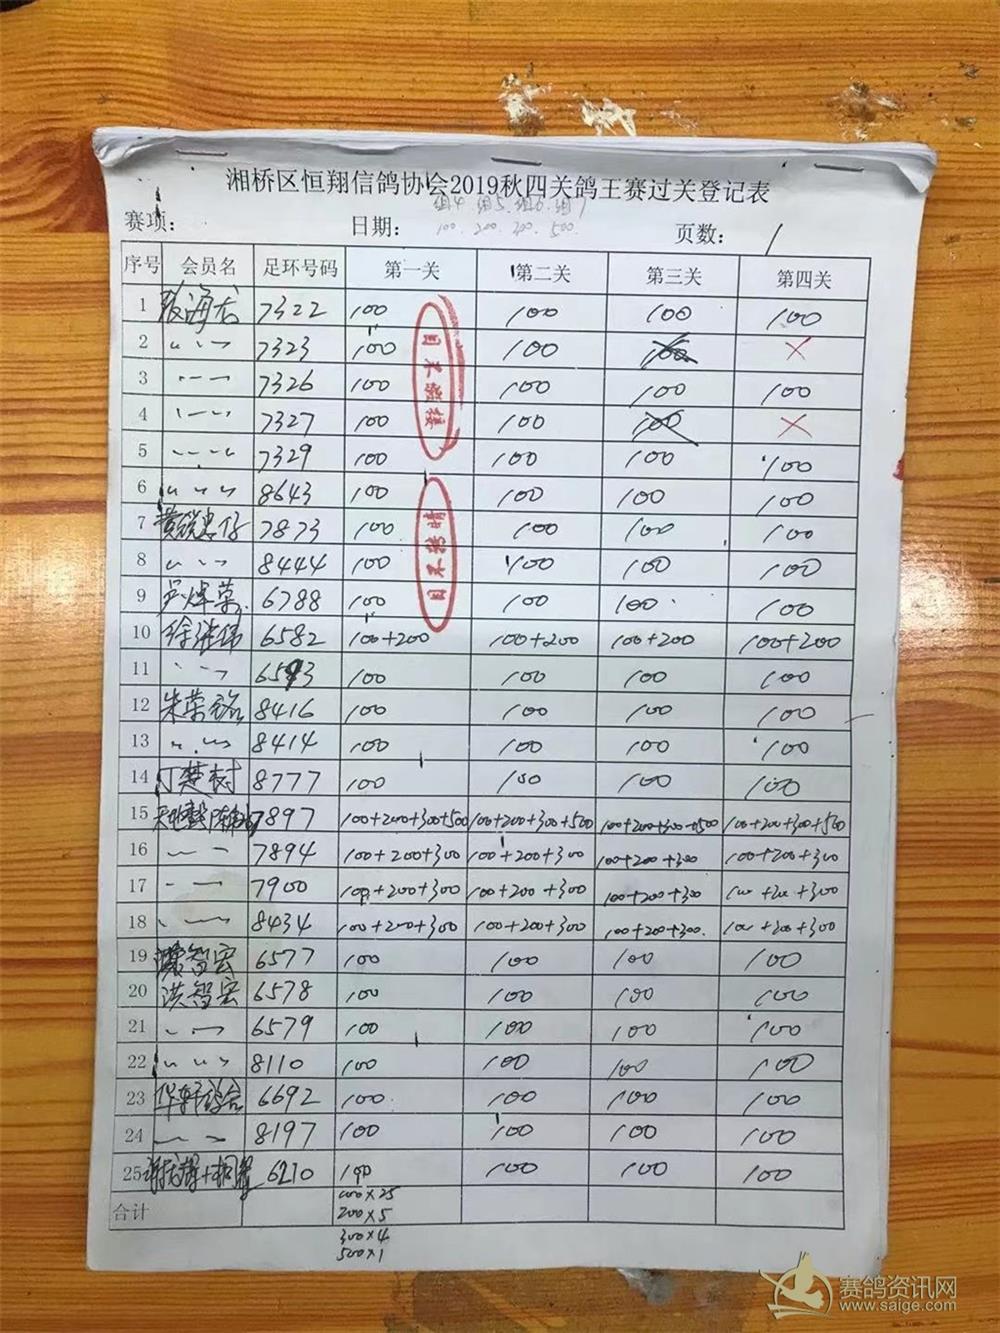 湘桥区恒翔信鸽协会2019秋四关鸽王赛过关登记表
组4. 组5. 组6. 组7
赛项: 日期: 100. 200. 300. 500. 页数: 1
序号 会员名 足环号码 第一关 第二关 第三关 第四关
1 7322 100 100 100 100
2 〃 〃 7323 100 100 100 ×
3 〃 〃 7326 100 100 100 100
4 〃 〃 7327 100 100 100 ×
5 〃 〃 7329 100 100 100 100
6 〃 〃 8643 100 100 100 100
7 7873 100 100 100 100
8 〃 〃 8444 100 100 100 100
9 6788 100 100 100 100
10 6582 100+200 100+200 100+200 100+200
11 〃 〃 6593 100 100 100 100
12 朱荣铭 8416 100 100 100 100
13 〃 〃 8414 100 100 100 100
14 丁楚树 8777 100 100 100 100
15 7897 100+200+300+500 100+200+300+500 100+200+300+500 100+200+300+500
16 〃 〃 7894 100+200+300 100+200+300 100+200+300 100+200+300
17 〃 〃 7900 100+200+300 100+200+300 100+200+300 100+200+300
18 〃 〃 8434 100+200+300 100+200+300 100+200+300. 100+200+300
19 智宏 6577 100 100 100 100
20 洪智宏 6578 100 100 100 100
21 〃 〃 6579 100 100 100 100
22 〃 〃 8110 100 100 100 100
23 华轩鸽舍 6692 100 100 100 100
24 〃 〃 8197 100 100 100 100
25 6210 100 100 100 100
合计 100×25
200×5
300×4
500×1
赛鸽资讯网
www.saige.com